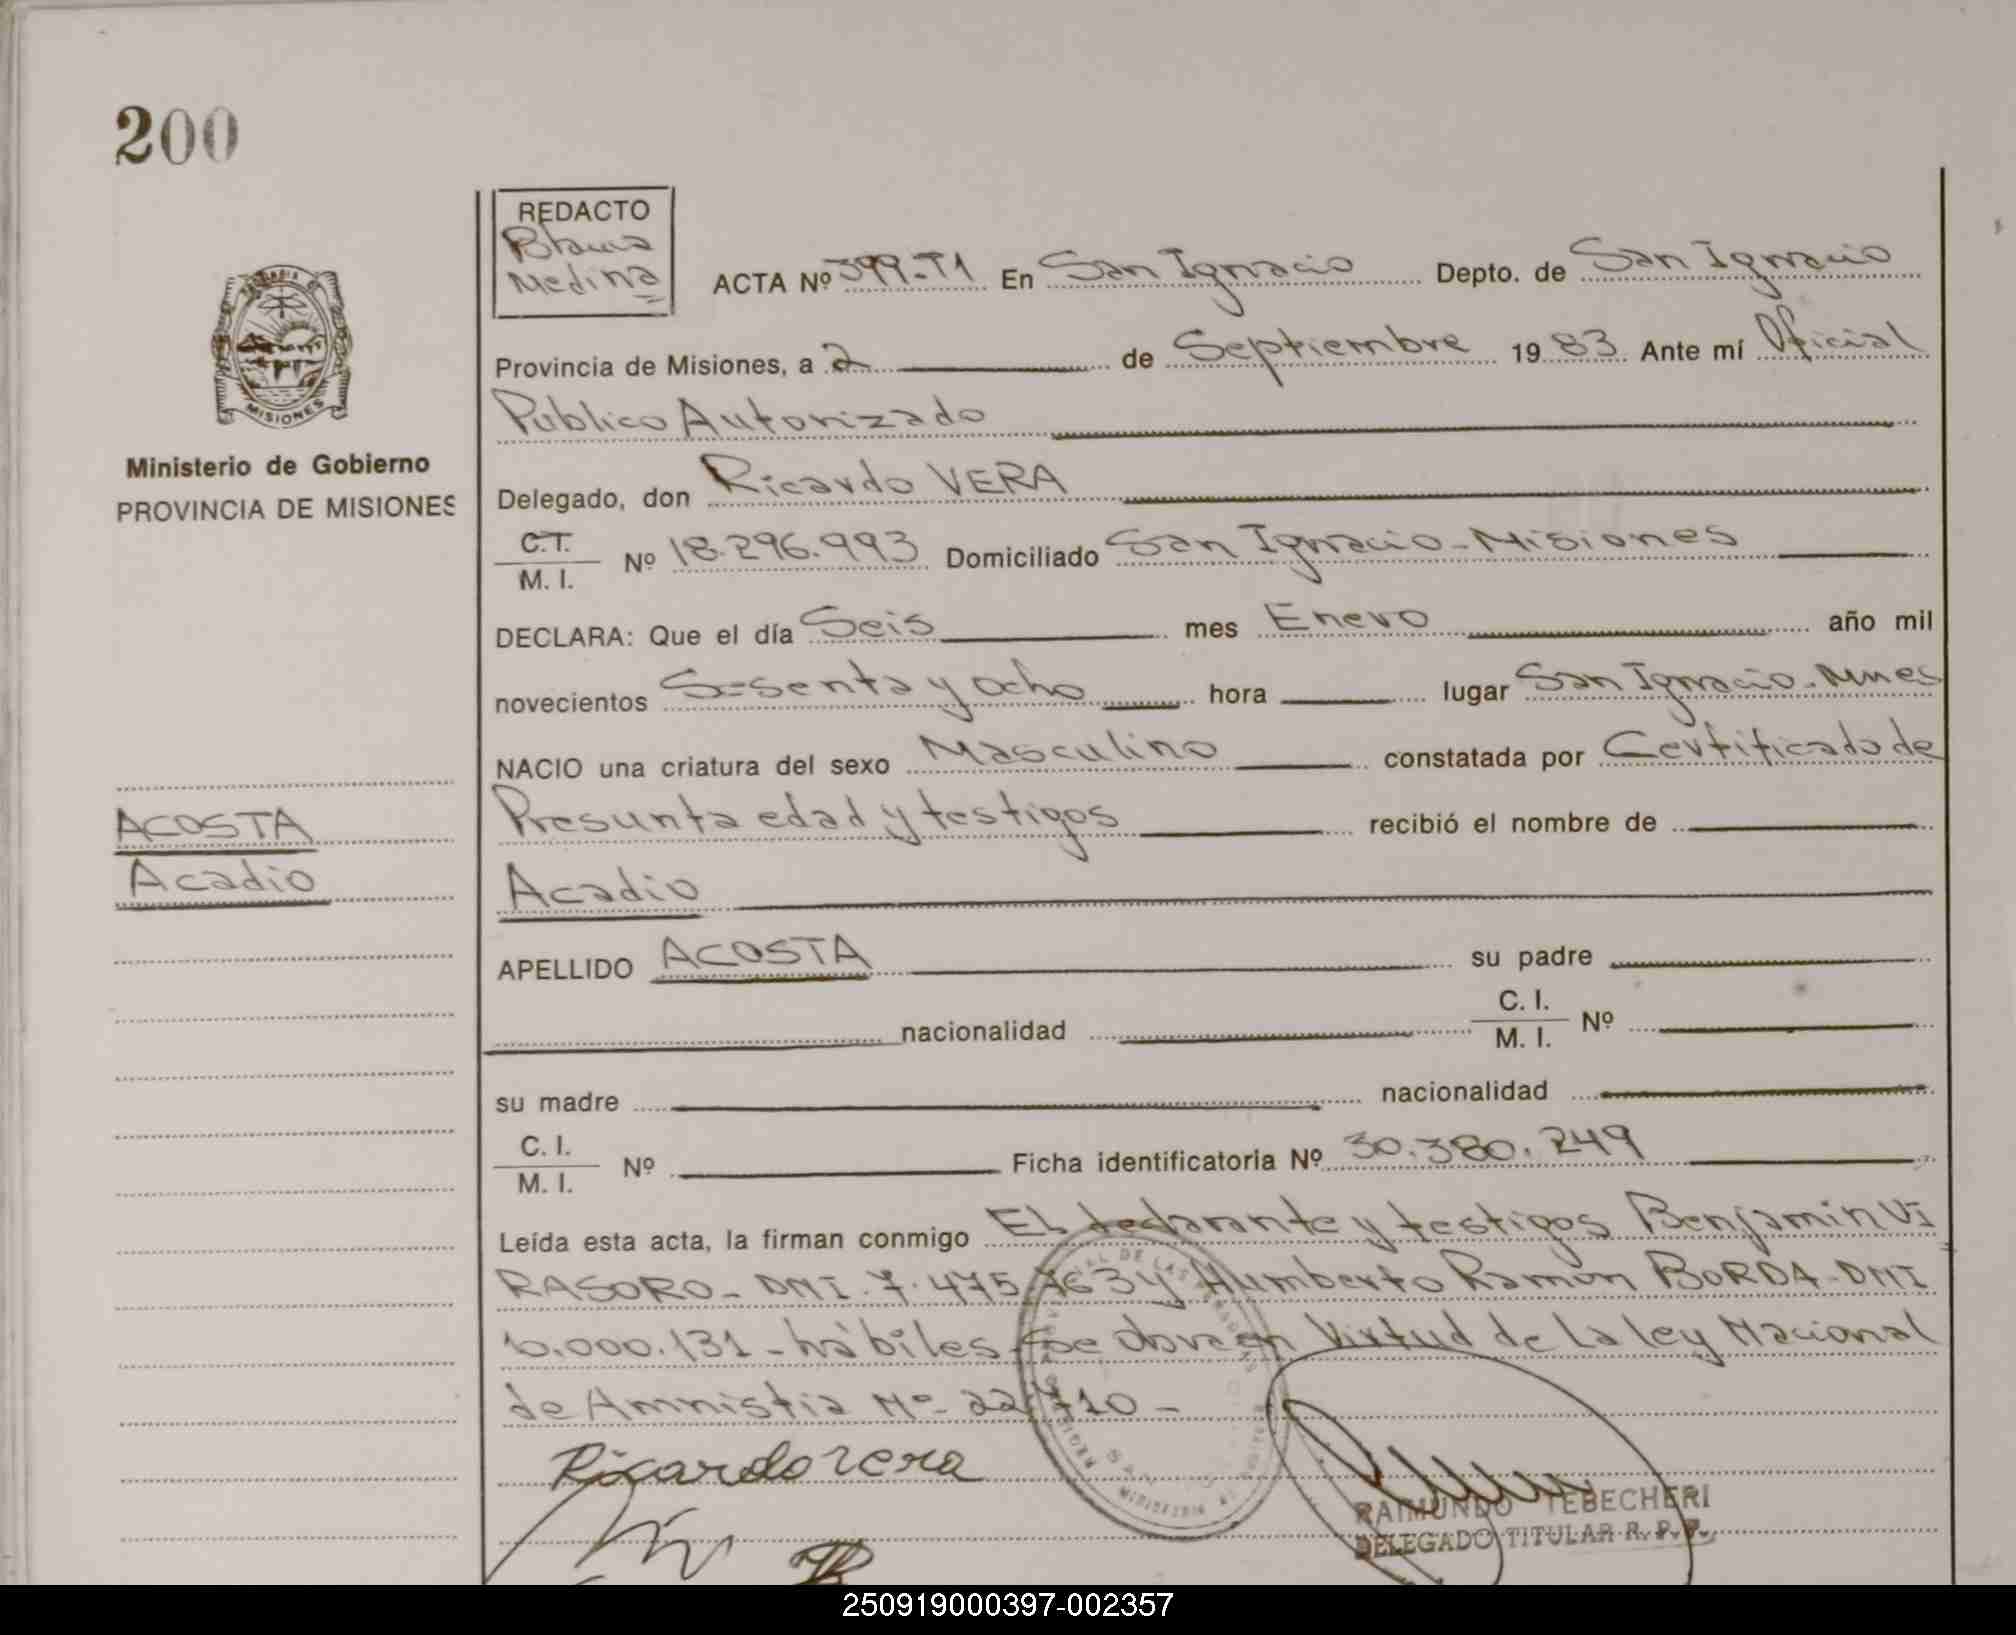 200
REDACTO
Blanca
Medina
ACTA Nº 399-T1 En San Ignacio Depto. de San Ignacio
Provincia de Misiones, a 2 de Septiembre 1983 Ante mí Oficial
Publico Autorizado
MISIONES
Ministerio de Gobierno
PROVINCIA DE MISIONES
Delegado, don Ricardo VERA
C.T.
M. I. Nº 18.296.993 Domiciliado San Ignacio - Misiones
DECLARA: Que el día Seis mes Enero año mil
novecientos Sesenta y ocho hora lugar San Ignacio - Mnes
NACIO una criatura del sexo Masculino constatada por Certificado de
Presunta edad y testigos recibió el nombre de
ACOSTA
Acadio
Acadio
APELLIDO ACOSTA su padre
nacionalidad C. I.
M. I. Nº
su madre nacionalidad
C. I.
M. I. Nº Ficha identificatoria Nº 30.380.249
Leída esta acta, la firman conmigo El declarante y testigos Benjamin VI
RASORO - DNI. 7.475.763 y Humberto Ramón BORDA - DNI
10.000.131 - hábiles. Se labra en Virtud de La Ley Nacional
de Amnistia Nº 22.710 -
Ricardo vera
RAIMUNDO TEBECHERI
DELEGADO TITULAR R. P. P.
250919000397-002357